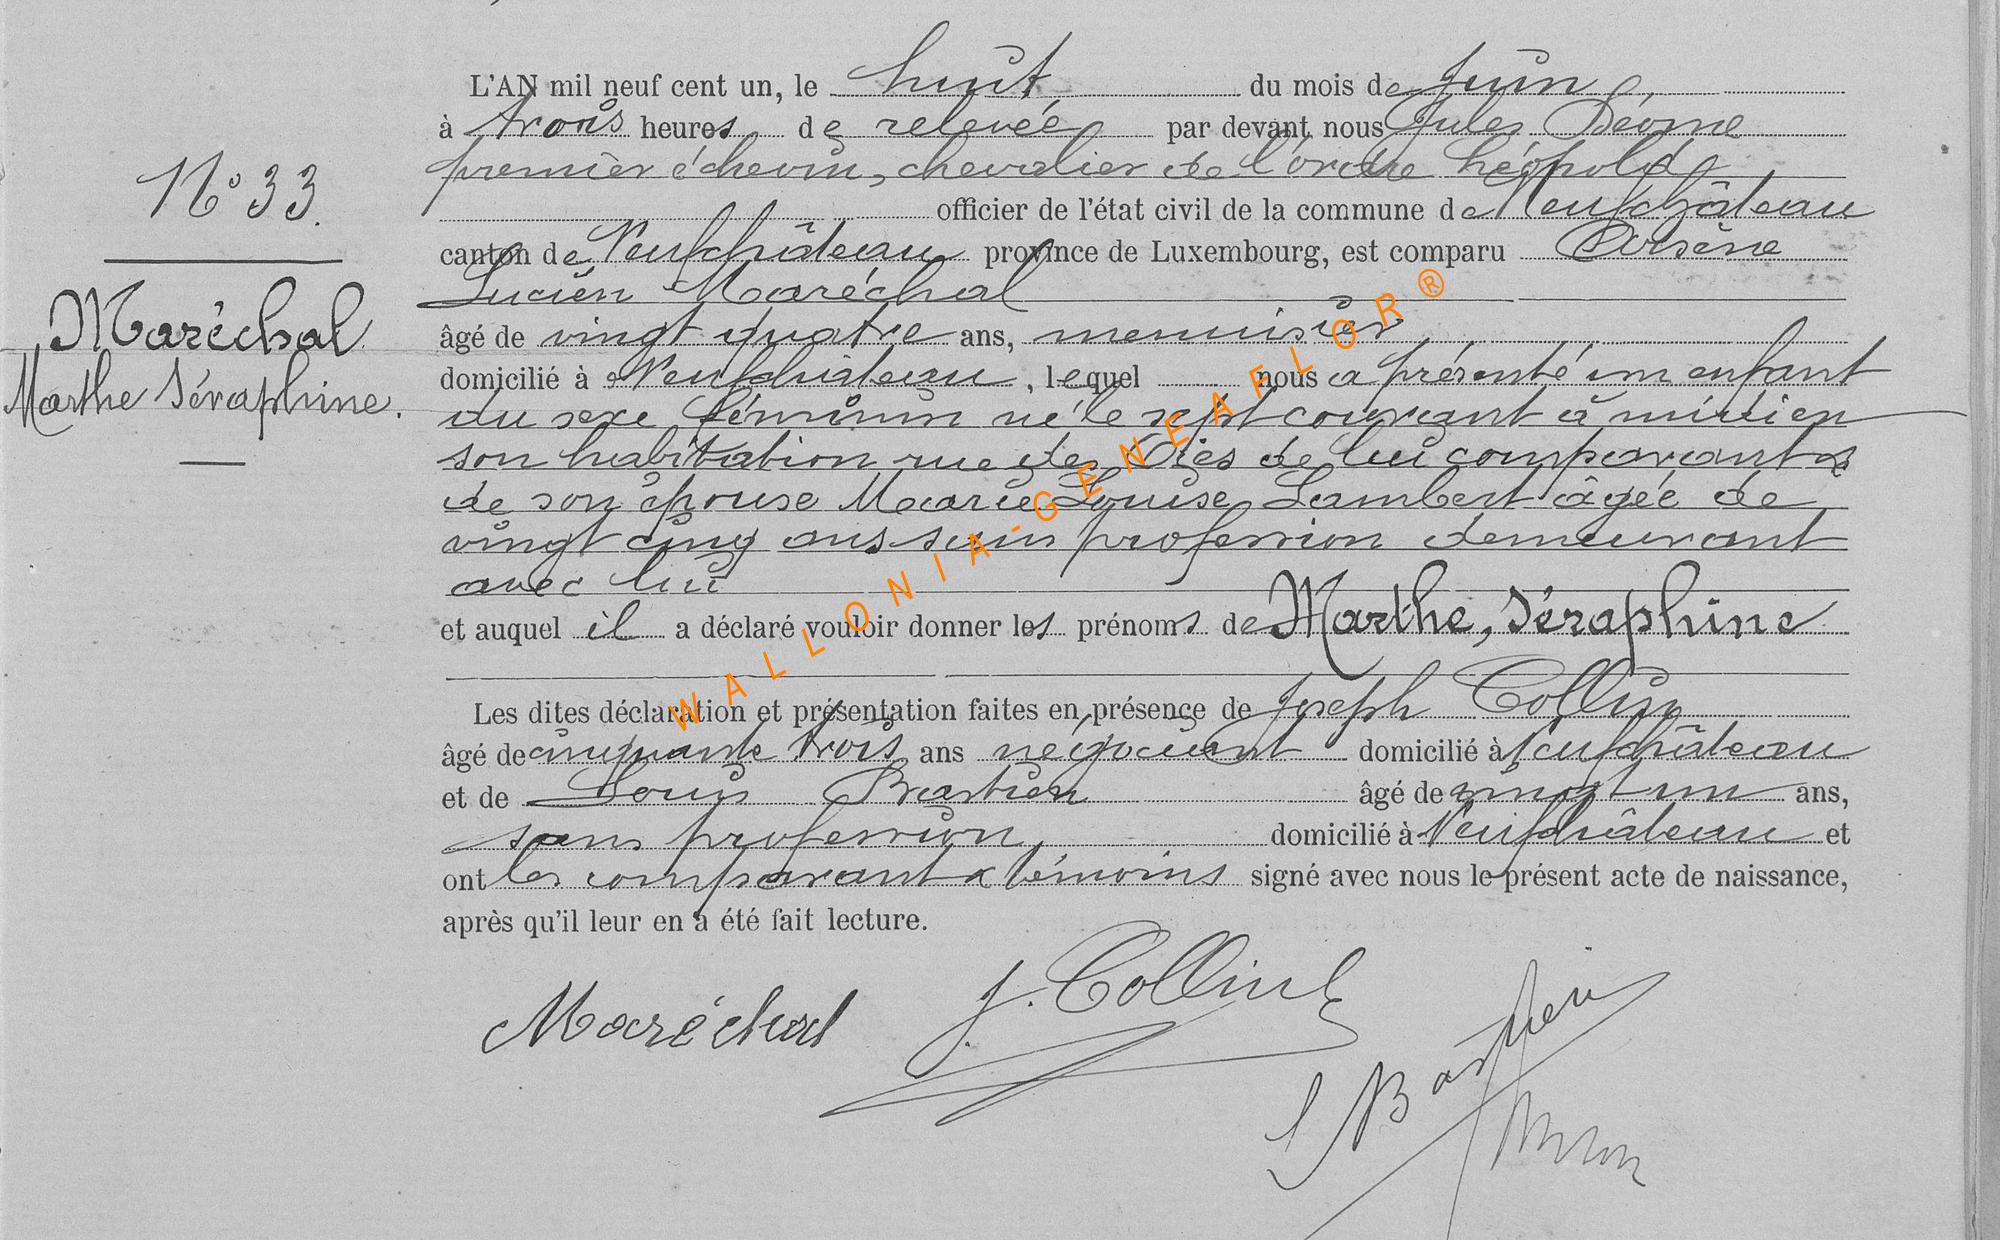 N° 33.
Maréchal
Marthe Séraphine.
L'AN mil neuf cent un, le huit du mois de Juin,
à trois heures de relevée par devant nous Jules
premier échevin, chevalier de l'ordre Léopold,
officier de l'état civil de la commune de Neufchâteau
canton de Neufchâteau province de Luxembourg, est comparu Arsène
Lucien Maréchal
âgé de vingt quatre ans, menuisier
domicilié à Neufchâteau, lequel nous a présenté un enfant
du sexe féminin né le sept courant à midi en
son habitation rue des Oies de lui comparant &
de son épouse Marie Louise Lambert âgée de
vingt cinq ans sans profession demeurant
avec lui
et auquel il a déclaré vouloir donner les prénoms de Marthe, Séraphine
Les dites déclaration et présentation faites en présence de Joseph Collin
âgé de cinquante trois ans négociant domicilié à Neufchâteau
et de Louis Bastien âgé de vingt un ans,
sans profession domicilié à Neufchâteau et
ont les comparant & témoins signé avec nous le présent acte de naissance,
après qu'il leur en a été fait lecture.
Maréchal J. Collin L Bastien
WALLONIA-GENEAFLOR®